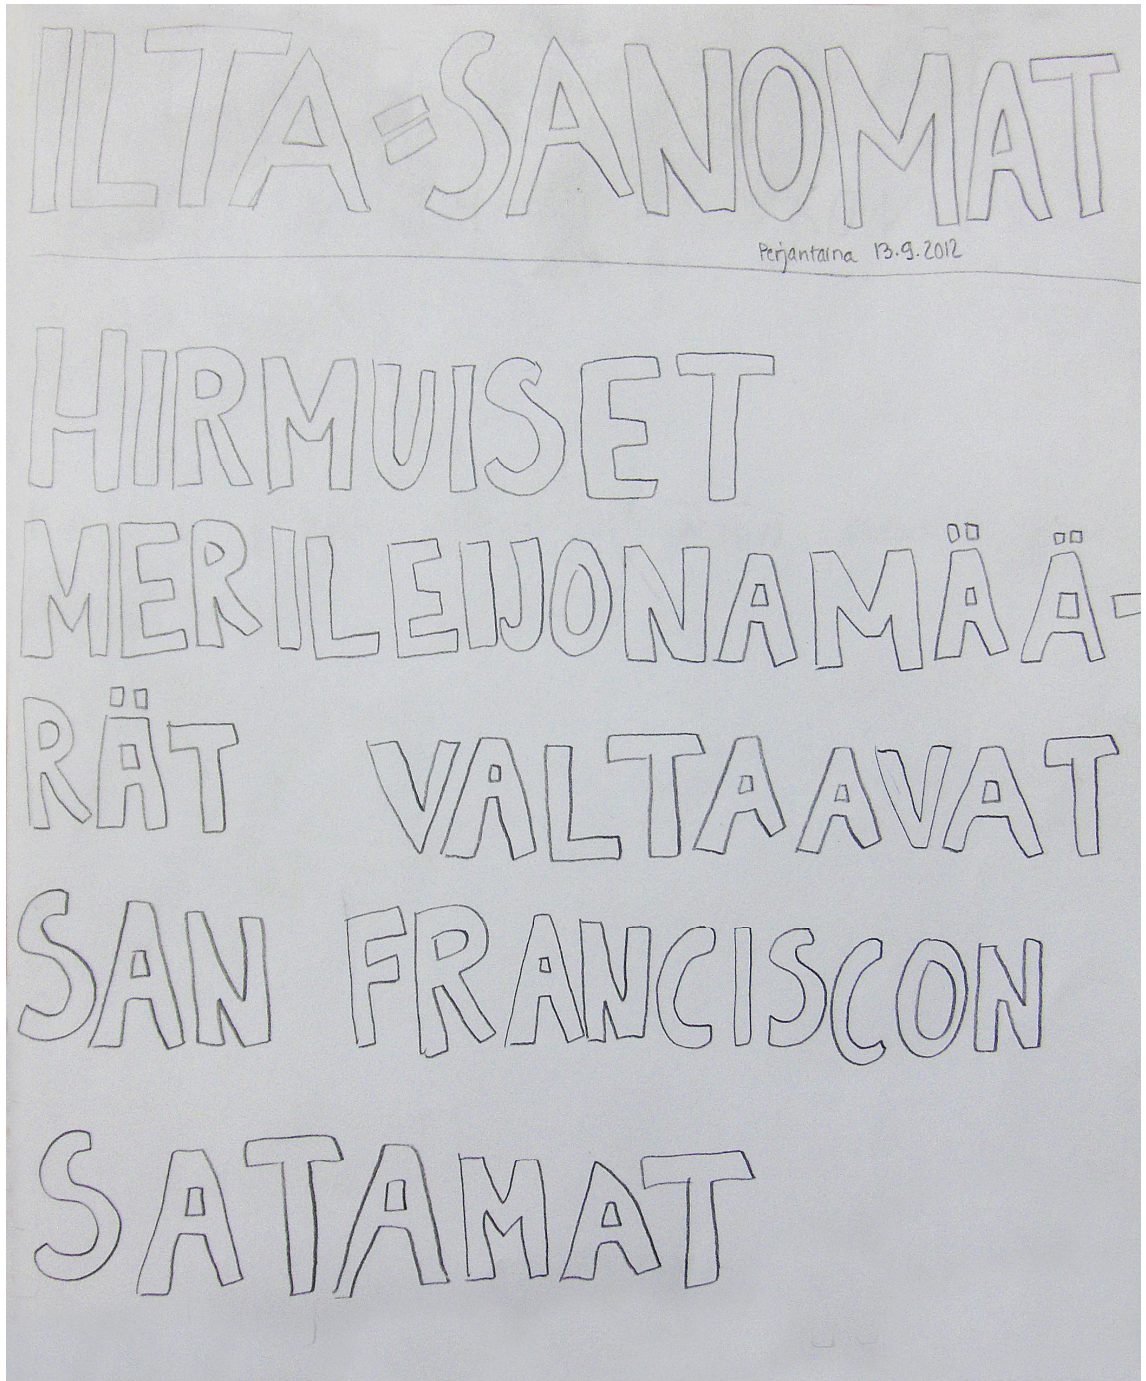 ILTA=SANOMAT
Perjantaina 13.9.2012
HIRMUISET
MERILEIJONAMÄÄ-
RÄT VALTAAVAT
SAN FRANCISCON
SATAMAT